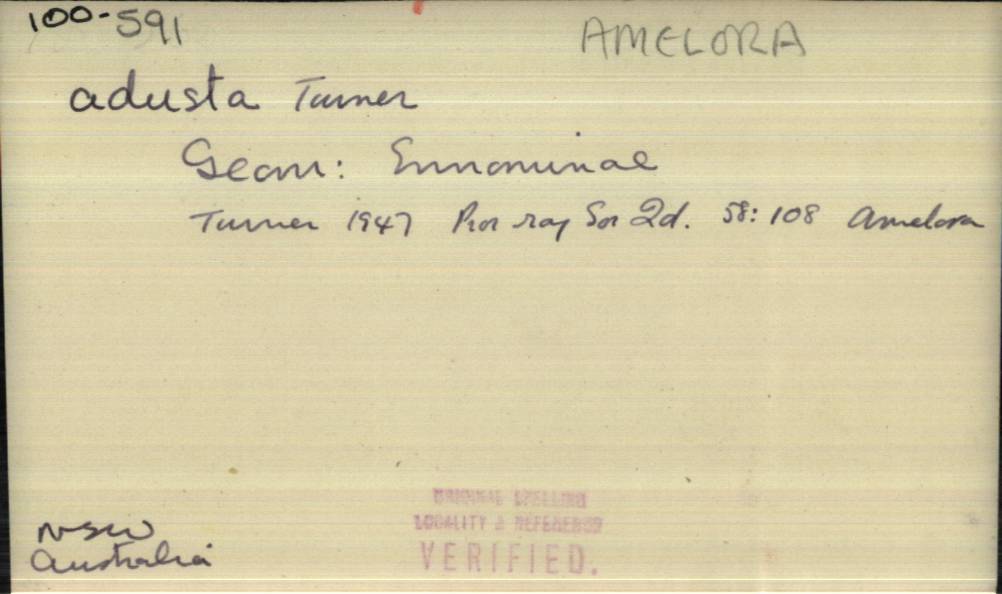 100-591
AMELORA
adusta Turner
Geom: Ennominae
Turner 1947 Proc roy Soc Qd. 58: 108 Amelora
NSW
Australia
ORIGINAL SPELLING
LOCALITY & REFERENCE
VERIFIED.